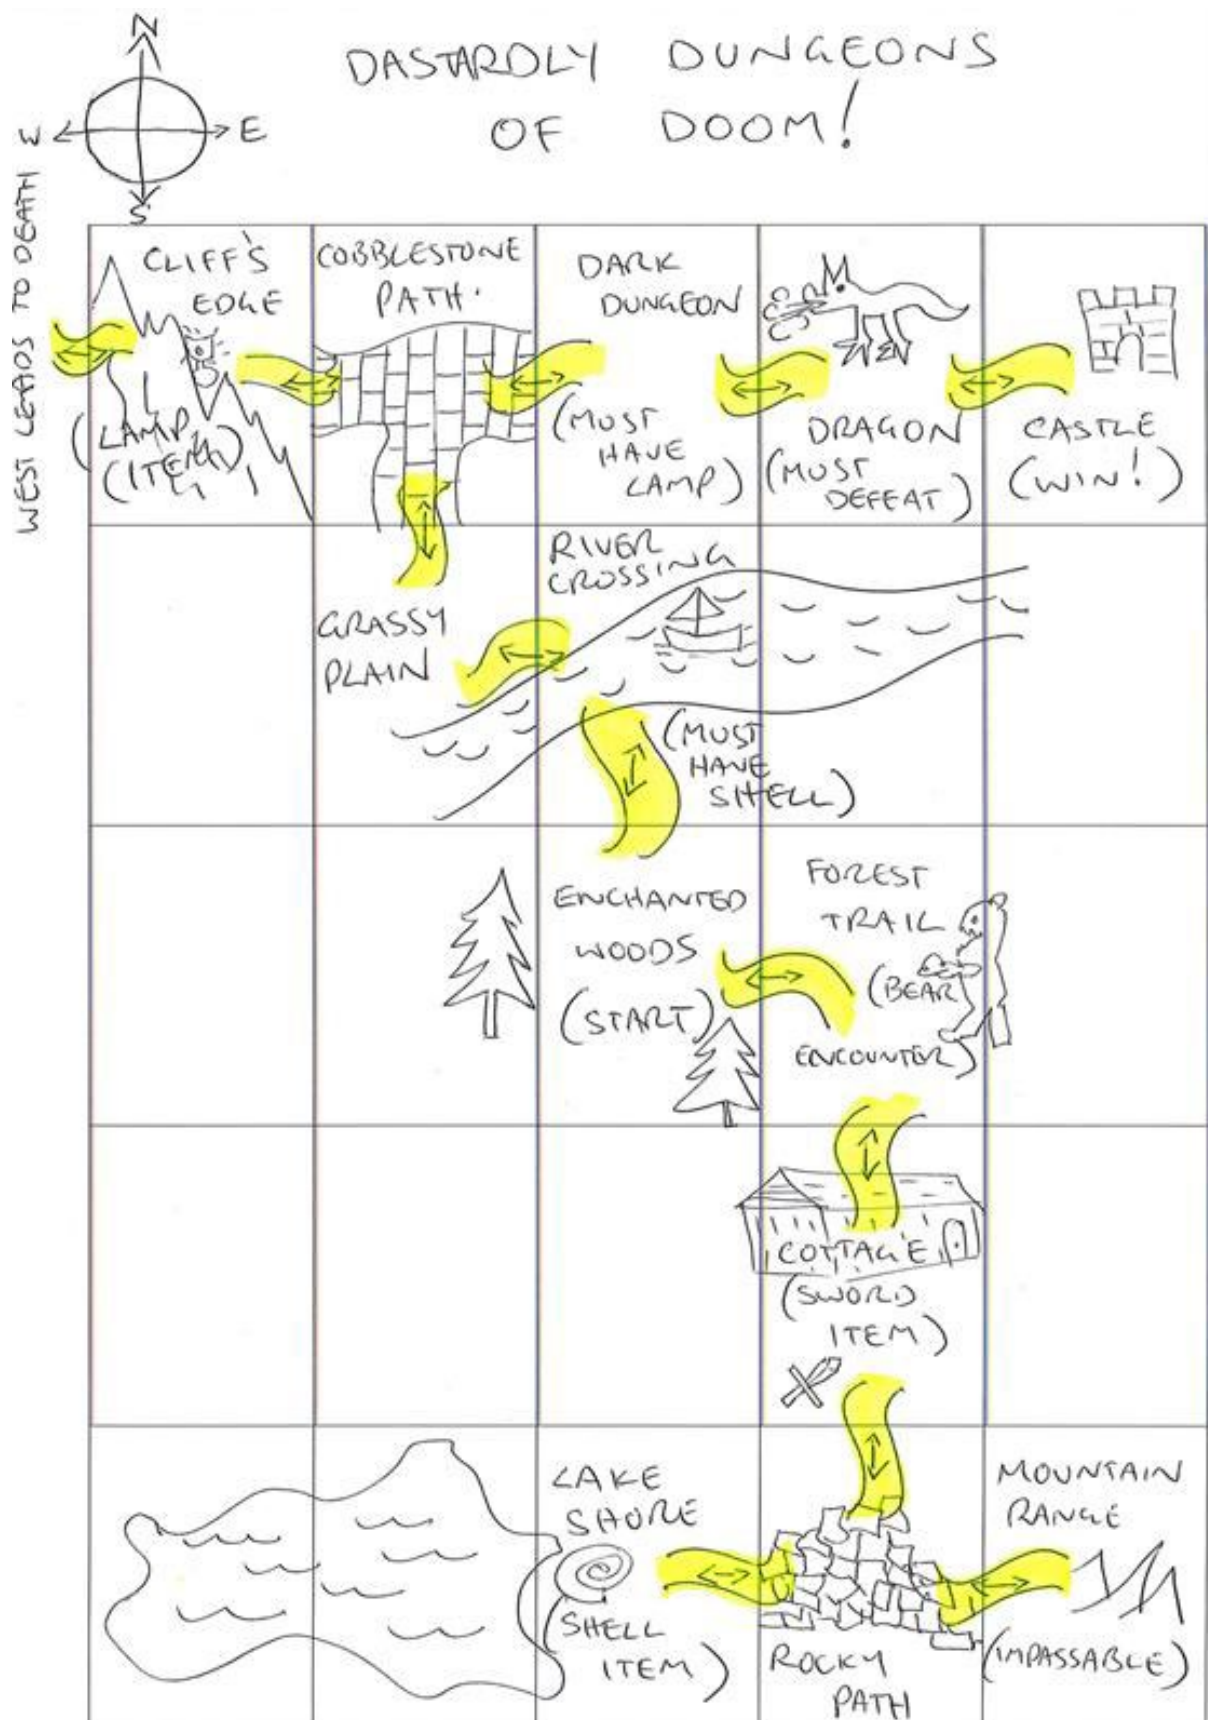 N
W
E
S
DASTARDLY DUNGEONS
OF DOOM!
WEST LEADS TO DEATH
CLIFF'S
EDGE
(LAMP
(ITEM)
COBBLESTONE
PATH.
DARK
DUNGEON
(MUST
HAVE
LAMP)
DRAGON
(MUST
DEFEAT)
CASTLE
(WIN!)
GRASSY
PLAIN
RIVER
CROSSING
(MUST
HAVE
SHELL)
ENCHANTED
WOODS
(START)
FOREST
TRAIL
(BEAR
ENCOUNTER)
COTTAGE
(SWORD
ITEM)
LAKE
SHORE
(SHELL
ITEM)
ROCKY
PATH
MOUNTAIN
RANGE
(IMPASSABLE)